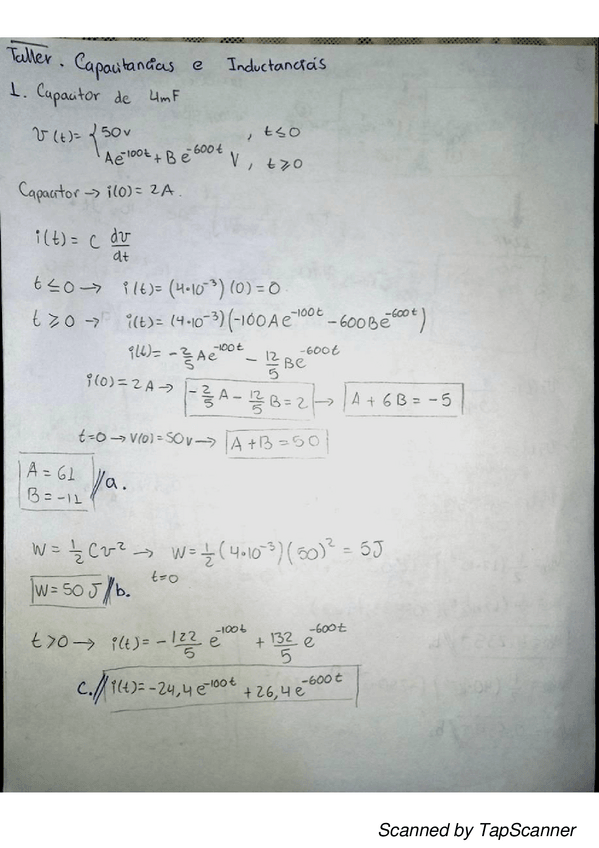 Taller. Capacitancias e Inductancias
1. Capacitor de 4mF
v(t)= { 50v , t≤0
Ae^-100t + Be^-600t V, t≥0
Capacitor → i(0)= 2A.
i(t)= C dv/dt
t≤0 → i(t)= (4·10^-3)(0)=0
t≥0 → i(t)= (4·10^-3)(-100Ae^-100t - 600Be^-600t)
i(t)= -2/5 Ae^-100t - 12/5 Be^-600t
i(0)=2A → -2/5 A - 12/5 B = 2 → A + 6B = -5
t=0 → V(0)=50v → A+B=50
A = 61
B = -11 // a.
W = 1/2 Cv² → W = 1/2 (4·10^-3)(50)² = 5J
t=0
W=50 J // b.
t>0 → i(t)= -122/5 e^-100t + 132/5 e^-600t
C. // i(t)= -24,4e^-100t + 26,4e^-600t
Scanned by TapScanner